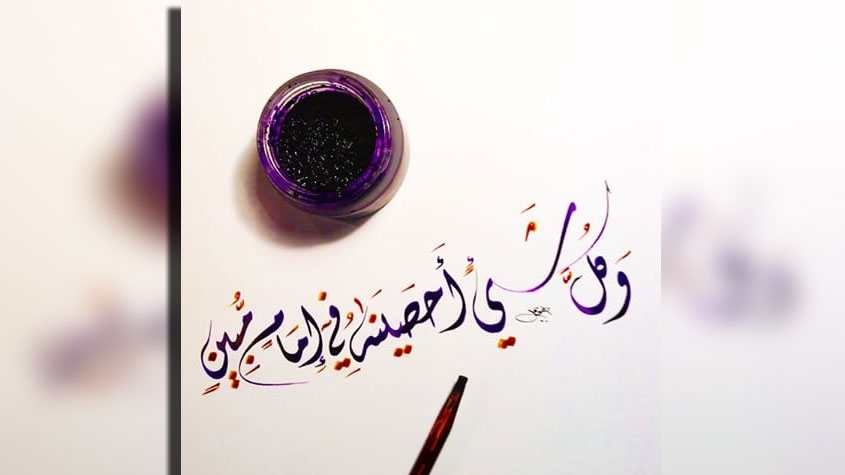 وَكُلَّ شَيْءٍ أَحْصَيْنَهُ فِي إِمَامٍ مُّبِينٍ